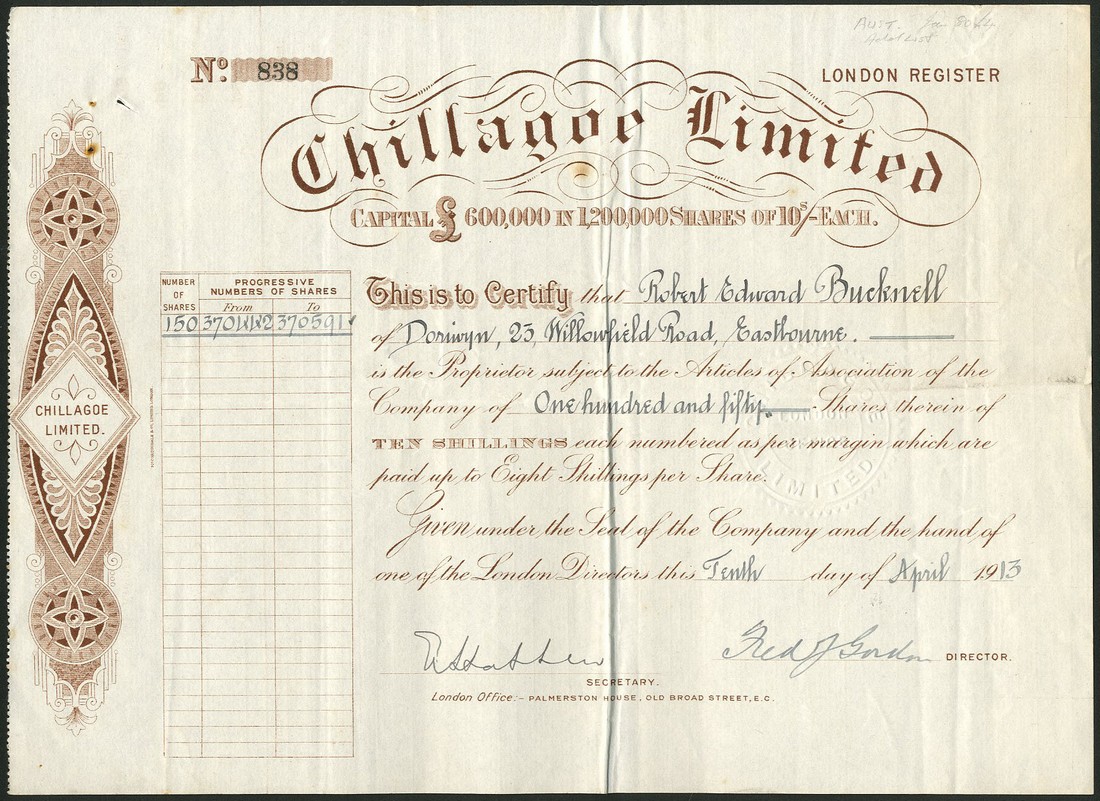 AUST.
Nº 838
LONDON REGISTER
Chillagoe Limited
CAPITAL £600,000 IN 1,200,000 SHARES OF 10S/- EACH.
NUMBER OF SHARES
PROGRESSIVE NUMBERS OF SHARES
From To
150 370442 370591
This is to Certify that Robert Edward Bucknell
of Doriwyn, 23, Willowfield Road, Eastbourne.
is the Proprietor subject to the Articles of Association of the
Company of One hundred and fifty Shares therein of
TEN SHILLINGS each numbered as per margin which are
paid up to Eight Shillings per Share.
Given under the Seal of the Company and the hand of
one of the London Directors this Tenth day of April 1913
CHILLAGOE
LIMITED.
LIMITED
Fred J Gordon DIRECTOR.
SECRETARY.
London Office:- PALMERSTON HOUSE, OLD BROAD STREET, E.C.